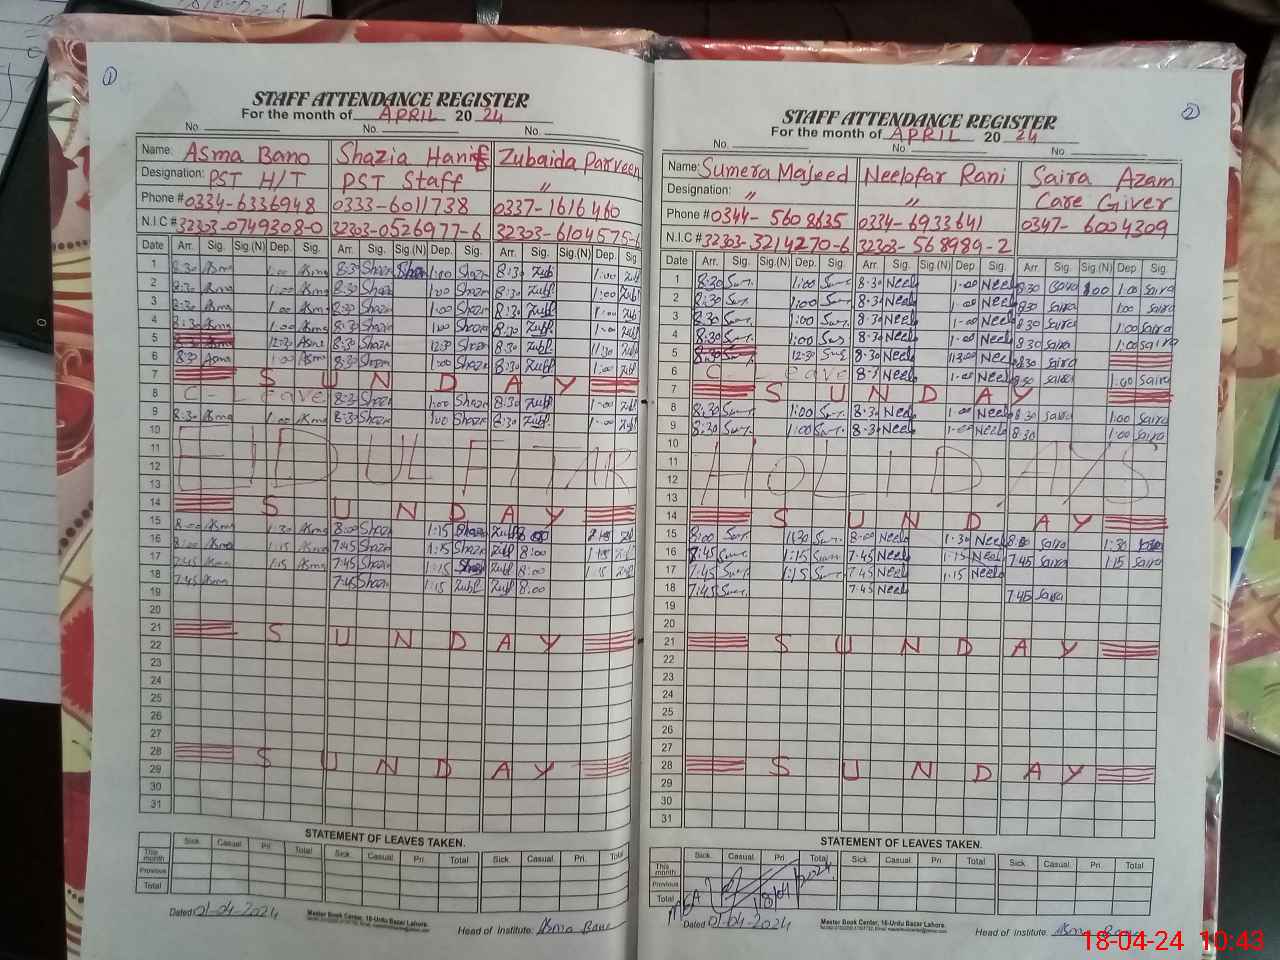 1
STAFF ATTENDANCE REGISTER
For the month of APRIL 2024
No. No. No.
Name: Asma Bano Shazia Hanif Zubaida Parveen
Designation: PST H/T PST Staff "
Phone # 0334-6336948 0333-6011738 0337-1616460
N.I.C # 32303-0749308-0 32303-0526977-6 32303-6104575-6
Date Arr. Sig. Sig.(N) Dep. Sig. Arr. Sig. Sig.(N) Dep. Sig. Arr. Sig. Sig.(N) Dep. Sig.
1 8:30 Asma 1:00 Asma 8:30 Shazn Shazn 1:00 Shazn 8:30 Zub 1:00 Zub
2 8:30 Asma 1:00 Asma 8:30 Shazn 1:00 Shazn 8:30 Zubf 1:00 Zubf
3 8:30 Asma 1:00 Asma 8:30 Shazn 1:00 Shazn 8:30 Zubf 1:00 Zubf
4 8:30 Asma 1:00 Asma 8:30 Shazn 1:00 Shazn 8:30 Zubf 1:00 Zubf
5 12:30 Asma 8:30 Shazn 12:30 Shazn 8:30 Zubf 11:30 Zubf
6 8:30 Asma 1:00 Asma 8:30 Shazn 1:00 Shazn 8:30 Zubf 1:00 Zubf
7 SUNDAY
8 C-Leave 8:30 Shazn 1:00 Shazn 8:30 Zubf 1:00 Zubf
9 8:30 Asma 1:00 Asma 8:30 Shazn 1:00 Shazn 8:30 Zubf 1:00 Zubf
10
11 EID UL FITAR
12
13
14 SUNDAY
15 8:00 Asma 1:30 Asma 8:00 Shazn 1:15 Shazn Zubf
16 8:00 Asma 1:15 Asma 7:45 Shazn 1:15 Shazn Zubf 8:00
17 7:45 Asma 1:15 Asma 7:45 Shazn 1:15 Zubf 8:00 1:15 Zubf
18 7:45 Asma 7:45 Shazn 1:15 Zubf Zubf 8:00
19
20
21 SUNDAY
22
23
24
25
26
27
28 SUNDAY
29
30
31
STATEMENT OF LEAVES TAKEN.
Sick Casual Pri. Total Sick Casual Pri. Total Sick Casual Pri. Total
This month
Previous
Total
Dated 01-04-2024
Master Book Center, 16-Urdu Bazar Lahore.
Head of Institute: Asma Bano
2
STAFF ATTENDANCE REGISTER
For the month of APRIL 2024
No. No. No.
Name: Sumera Majeed Neelofar Rani Saira Azam
Designation: " " Care Giver
Phone # 0344-5608635 0334-6933641 0347-6004309
N.I.C # 32303-3214270-6 32303-568989-2
Date Arr. Sig. Sig.(N) Dep. Sig. Arr. Sig. Sig.(N) Dep. Sig. Arr. Sig. Sig.(N) Dep. Sig.
1 8:30 Sum. 1:00 Sum. 8:30 Neelo 1:00 Neelo 8:30 Saira 1:00 1:00 Saira
2 8:30 Sum. 1:00 Sum. 8:30 Neelo 1:00 Neelo 8:30 Saira 1:00 Saira
3 8:30 Sum. 1:00 Sum. 8:30 Neelo 1:00 Neelo 8:30 Saira 1:00 Saira
4 8:30 Sum. 1:00 Sum. 8:30 Neelo 1:00 Neelo 8:30 Saira 1:00 Saira
5 8:30 12:30 Sum. 8:30 Neelo Neelo 8:30 Saira
6 C-Leave 8:30 Neelo 1:00 Neelo 8:30 Saira 1:00 Saira
7 SUNDAY
8 8:30 Sum. 1:00 Sum. 8:30 Neelo 1:00 Neelo 8:30 Saira 1:00 Saira
9 8:30 Sum. 1:00 Sum. 8:30 Neelo 1:00 Neelo 8:30 1:00 Saira
10
11 HOLIDAYS
12
13
14 SUNDAY
15 8:00 Sum. 1:30 Sum. 8:00 Neelo 1:30 Neelo 8:00 Saira 1:30
16 7:45 Sum. 1:15 Sum. 7:45 Neelo 1:15 Neelo 7:45 Saira 1:15 Saira
17 7:45 Sum. 1:15 Sum. 7:45 Neelo 1:15 Neelo
18 7:45 Sum. 7:45 Neelo 7:45 Saira
19
20
21 SUNDAY
22
23
24
25
26
27
28 SUNDAY
29
30
31
STATEMENT OF LEAVES TAKEN.
Sick Casual Pri. Total Sick Casual Pri. Total Sick Casual Pri. Total
This month
Previous
Total
MEA 18/04/2024
Dated 01-04-2024
Master Book Center, 16-Urdu Bazar Lahore.
Head of Institute: Asma Bano
18-04-24 10:43